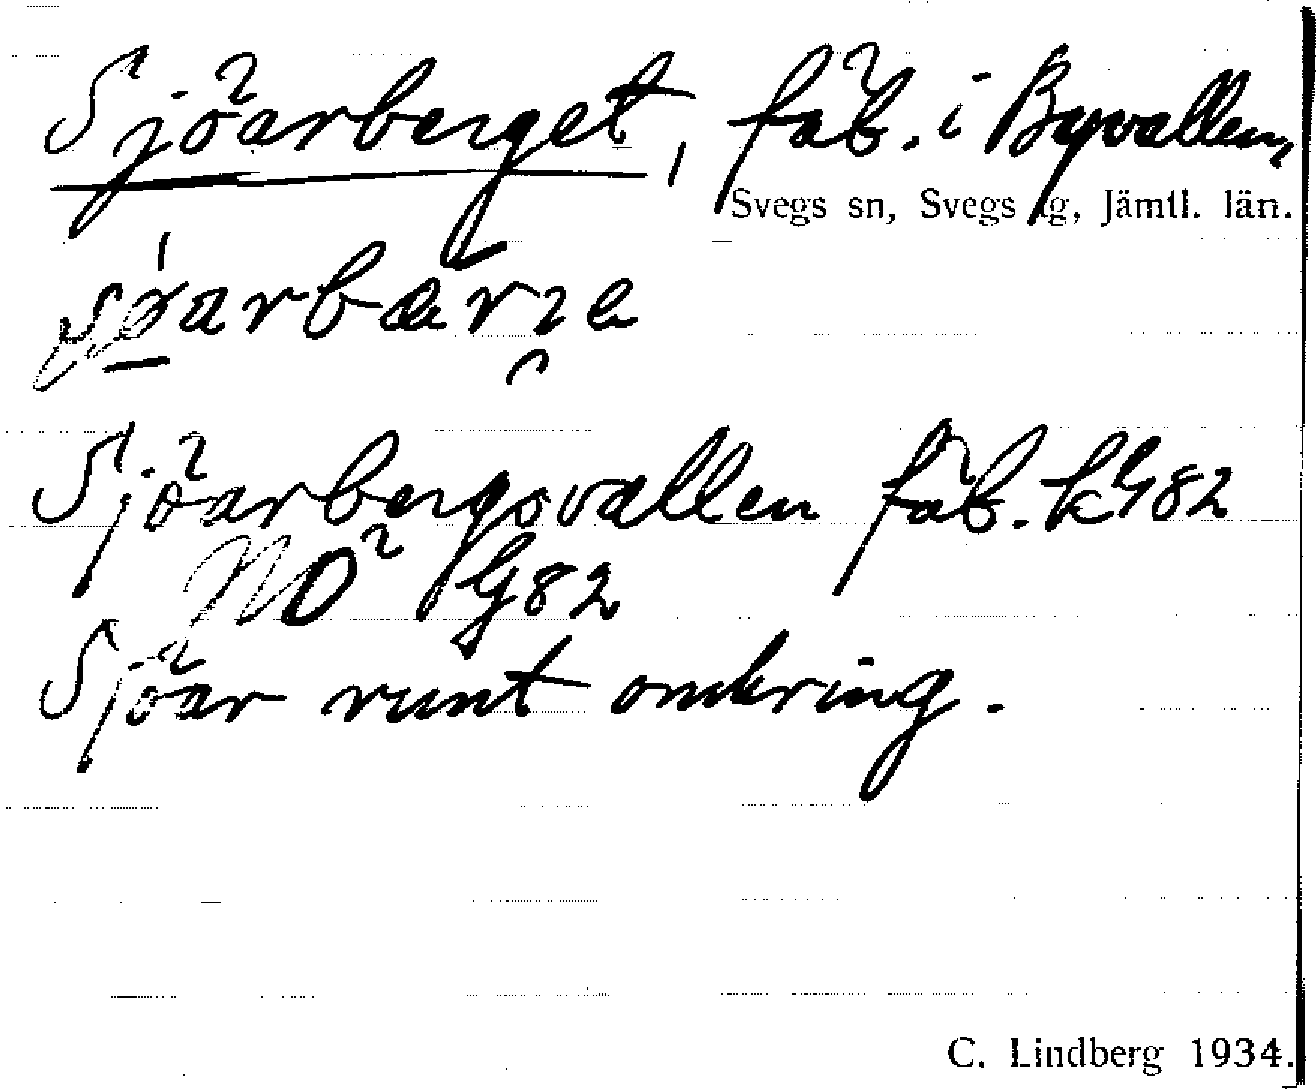 Sjöarberget, fäb. i Byvallen,
Svegs sn, Svegs tg, Jämtl. län.
Sjöarbergsvallen fäb. kG82
NO G82
Sjöar runt omkring.
C. Lindberg 1934.